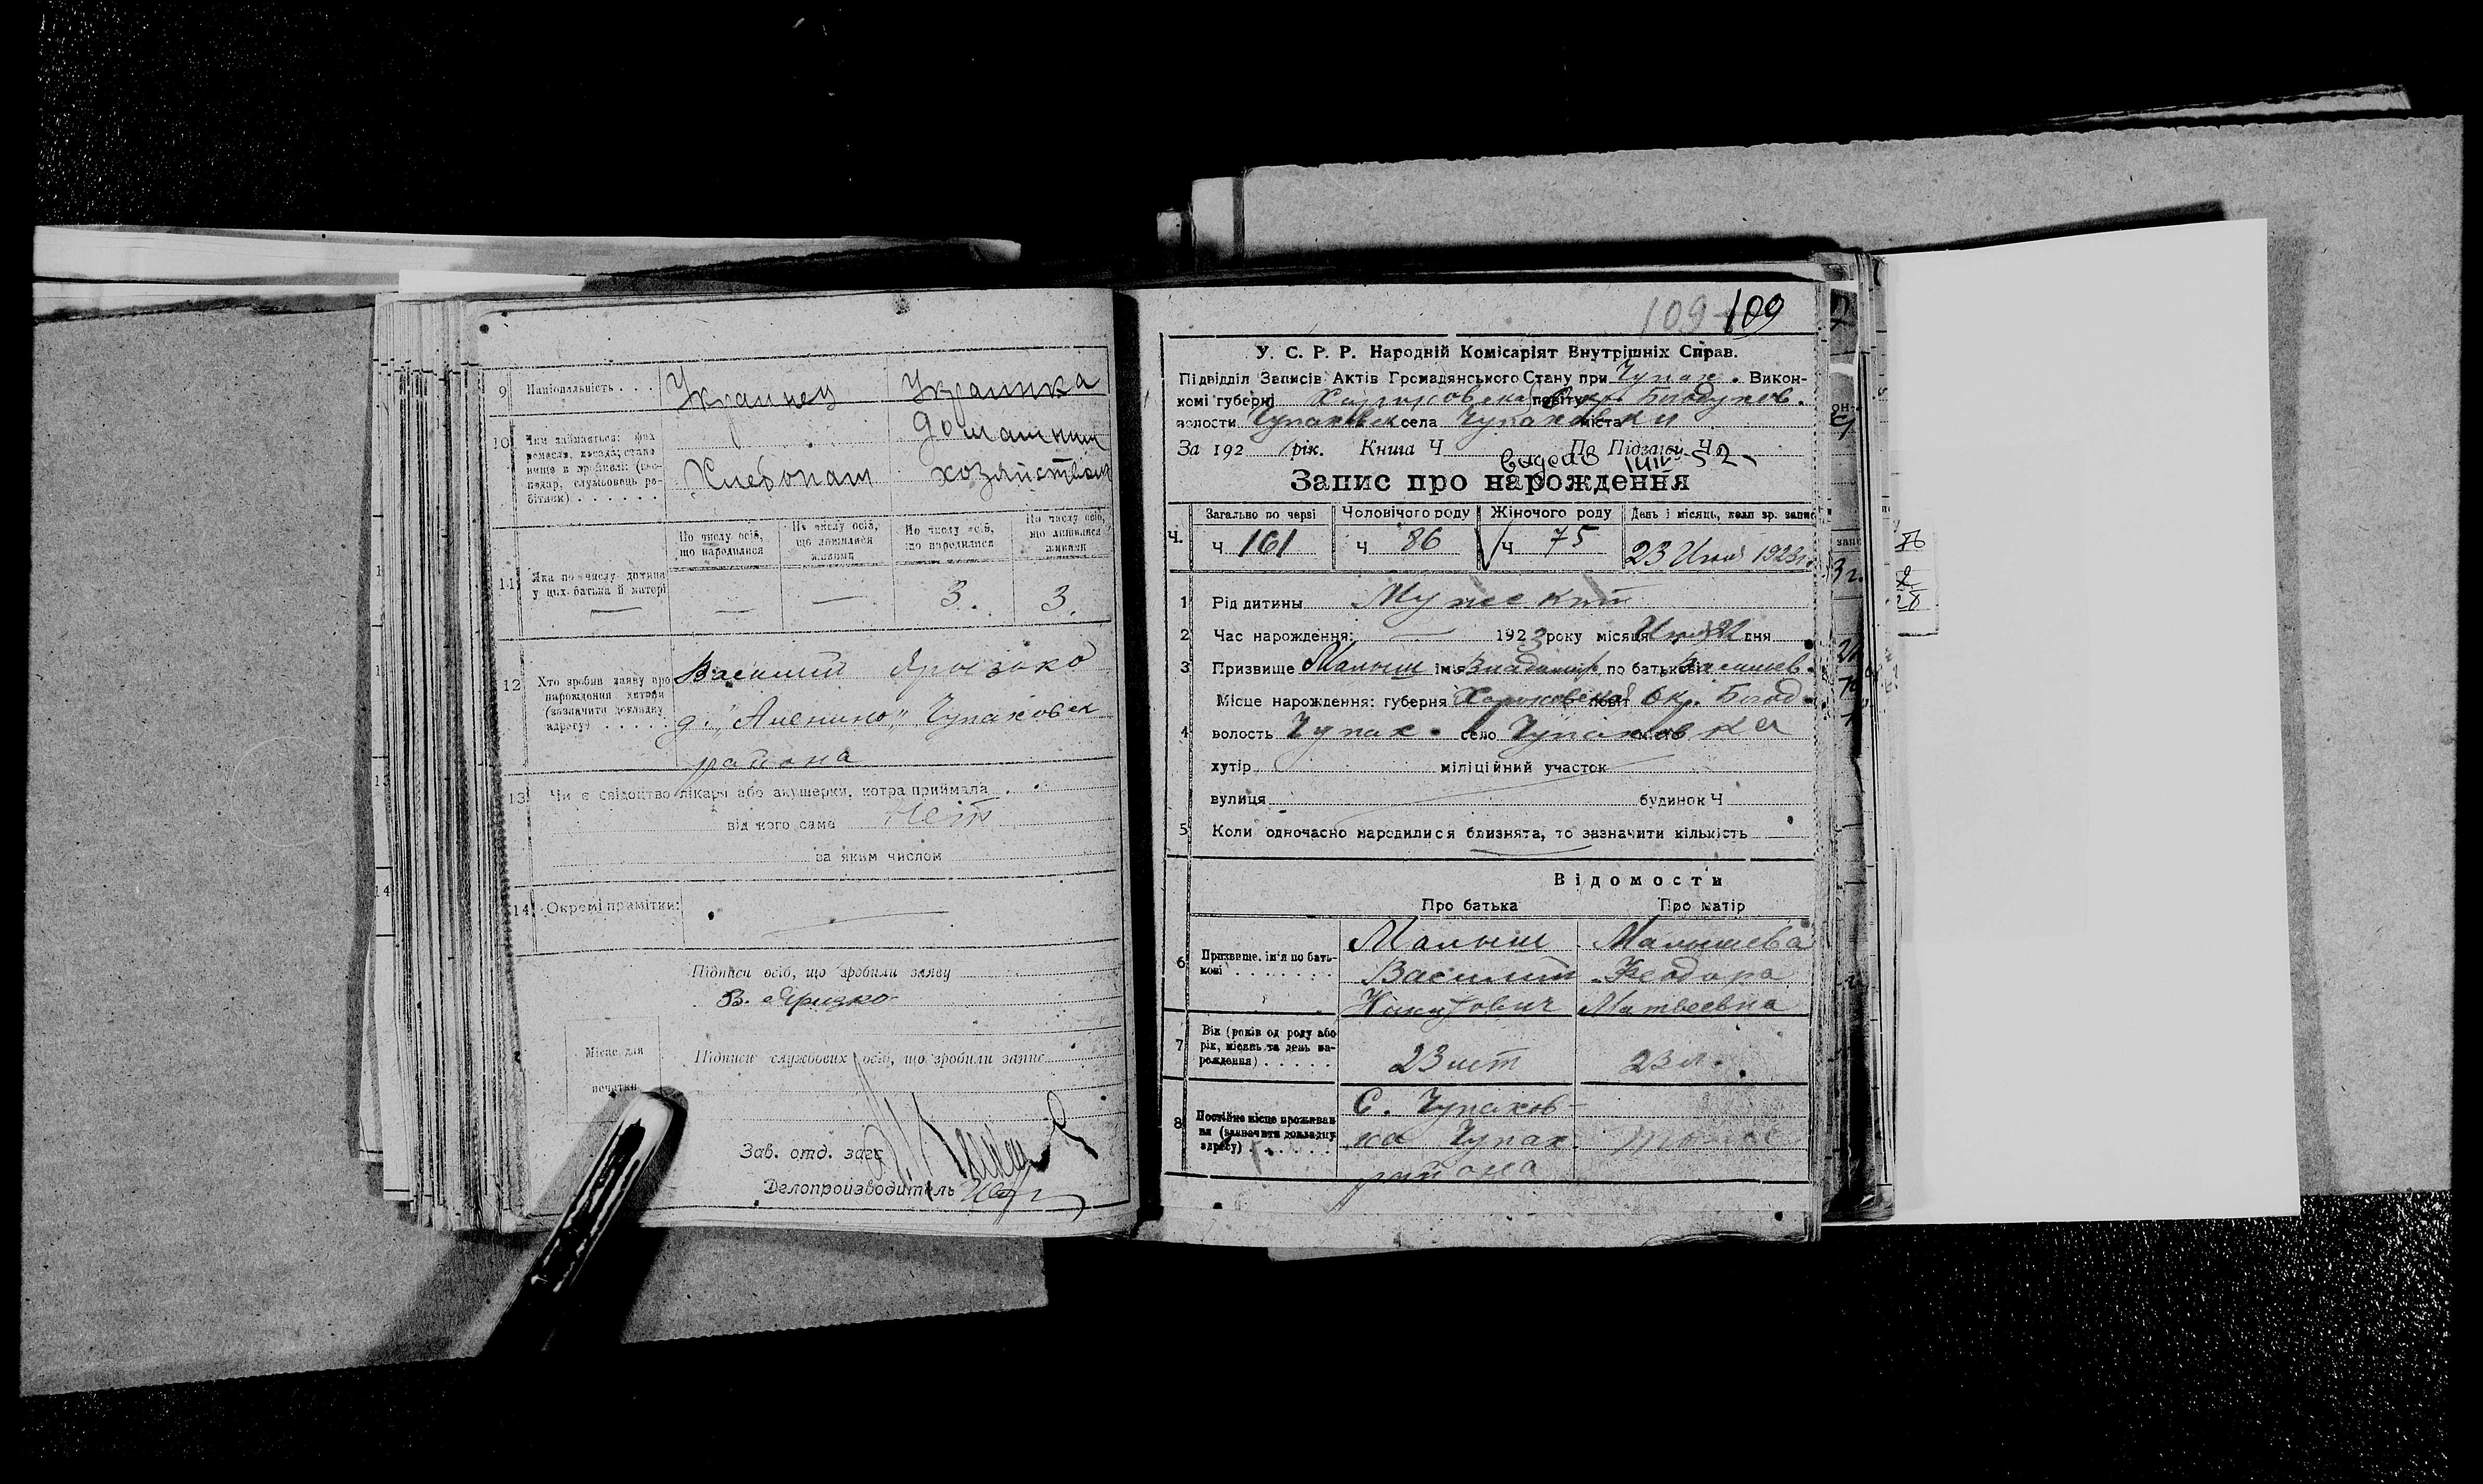 9 Національність . . . Украинец Украинка
10 Чим займається: фах ремесла, посада; становище в Домашним
Хлебопаш хозяйством
По числу осіб, що народилися По числу осіб, що лишилися живими По числу осіб, що народилися По числу осіб, що лишилися живими
11 Яка по числу дитина у цих батька й матері — — — 3. 3.
12 Хто зробив заяву про народження дитини (зазначити докладну адресу) . . . . Василий
д. „Аненино„ Чупаховск
района
13 Чи є свідоцтво лікаря або акушерки, котра приймала . . .
від кого саме Нет
за яким числом
14 Окремі примітки:
Підписи осіб, що зробили заяву
Підписи службових осіб, що зробили запис
Місце для
печатки
Зав. отд. загс
Делопроизводитель
109 109
У. С. Р. Р. Народній Комісаріят Внутрішніх Справ.
Підвідділ Записів Актів Громадянського Стану при Чупах. Викон-
комі губерні Харьковской повіту Окр. Богодухов.
волости Чупаховск села Чупаховки міста
За 192 рік. Книга Ч По Підрайону Ч
Запис про народження
Загально по черзі Чоловічого роду Жіночого роду День і місяць, коли зр. запис
Ч. Ч 161 Ч 86 Ч 75 23 Июл 1923г.
1 Рід дитины Мужескит
2 Час нарождення: — 1923 року місяця дня
3 Призвище Малыш ім'я Владимир по батькові Васильев.
Місце нарождення: губерня Харьковской повіт Окр. Богод.
4 волость Чупах. село Чупаховка
хутір міліційний участок
вулиця будинок Ч
5 Коли одночасно народилися близнята, то зазначити кількість
Відомости
Про батька Про матір
6 Призвище, ім'я по батькові . . . . . . . Малыш Малышева
Василий Феодора
Никитович Матвеевна
7 Вік (років од роду або рік, місяць та день народження) . . . . . 23 лет 23 л.
8 Постійне місце проживання (зазначити докладну адресу) . . . . . . С. Чупахов-
ка Чупах.
района